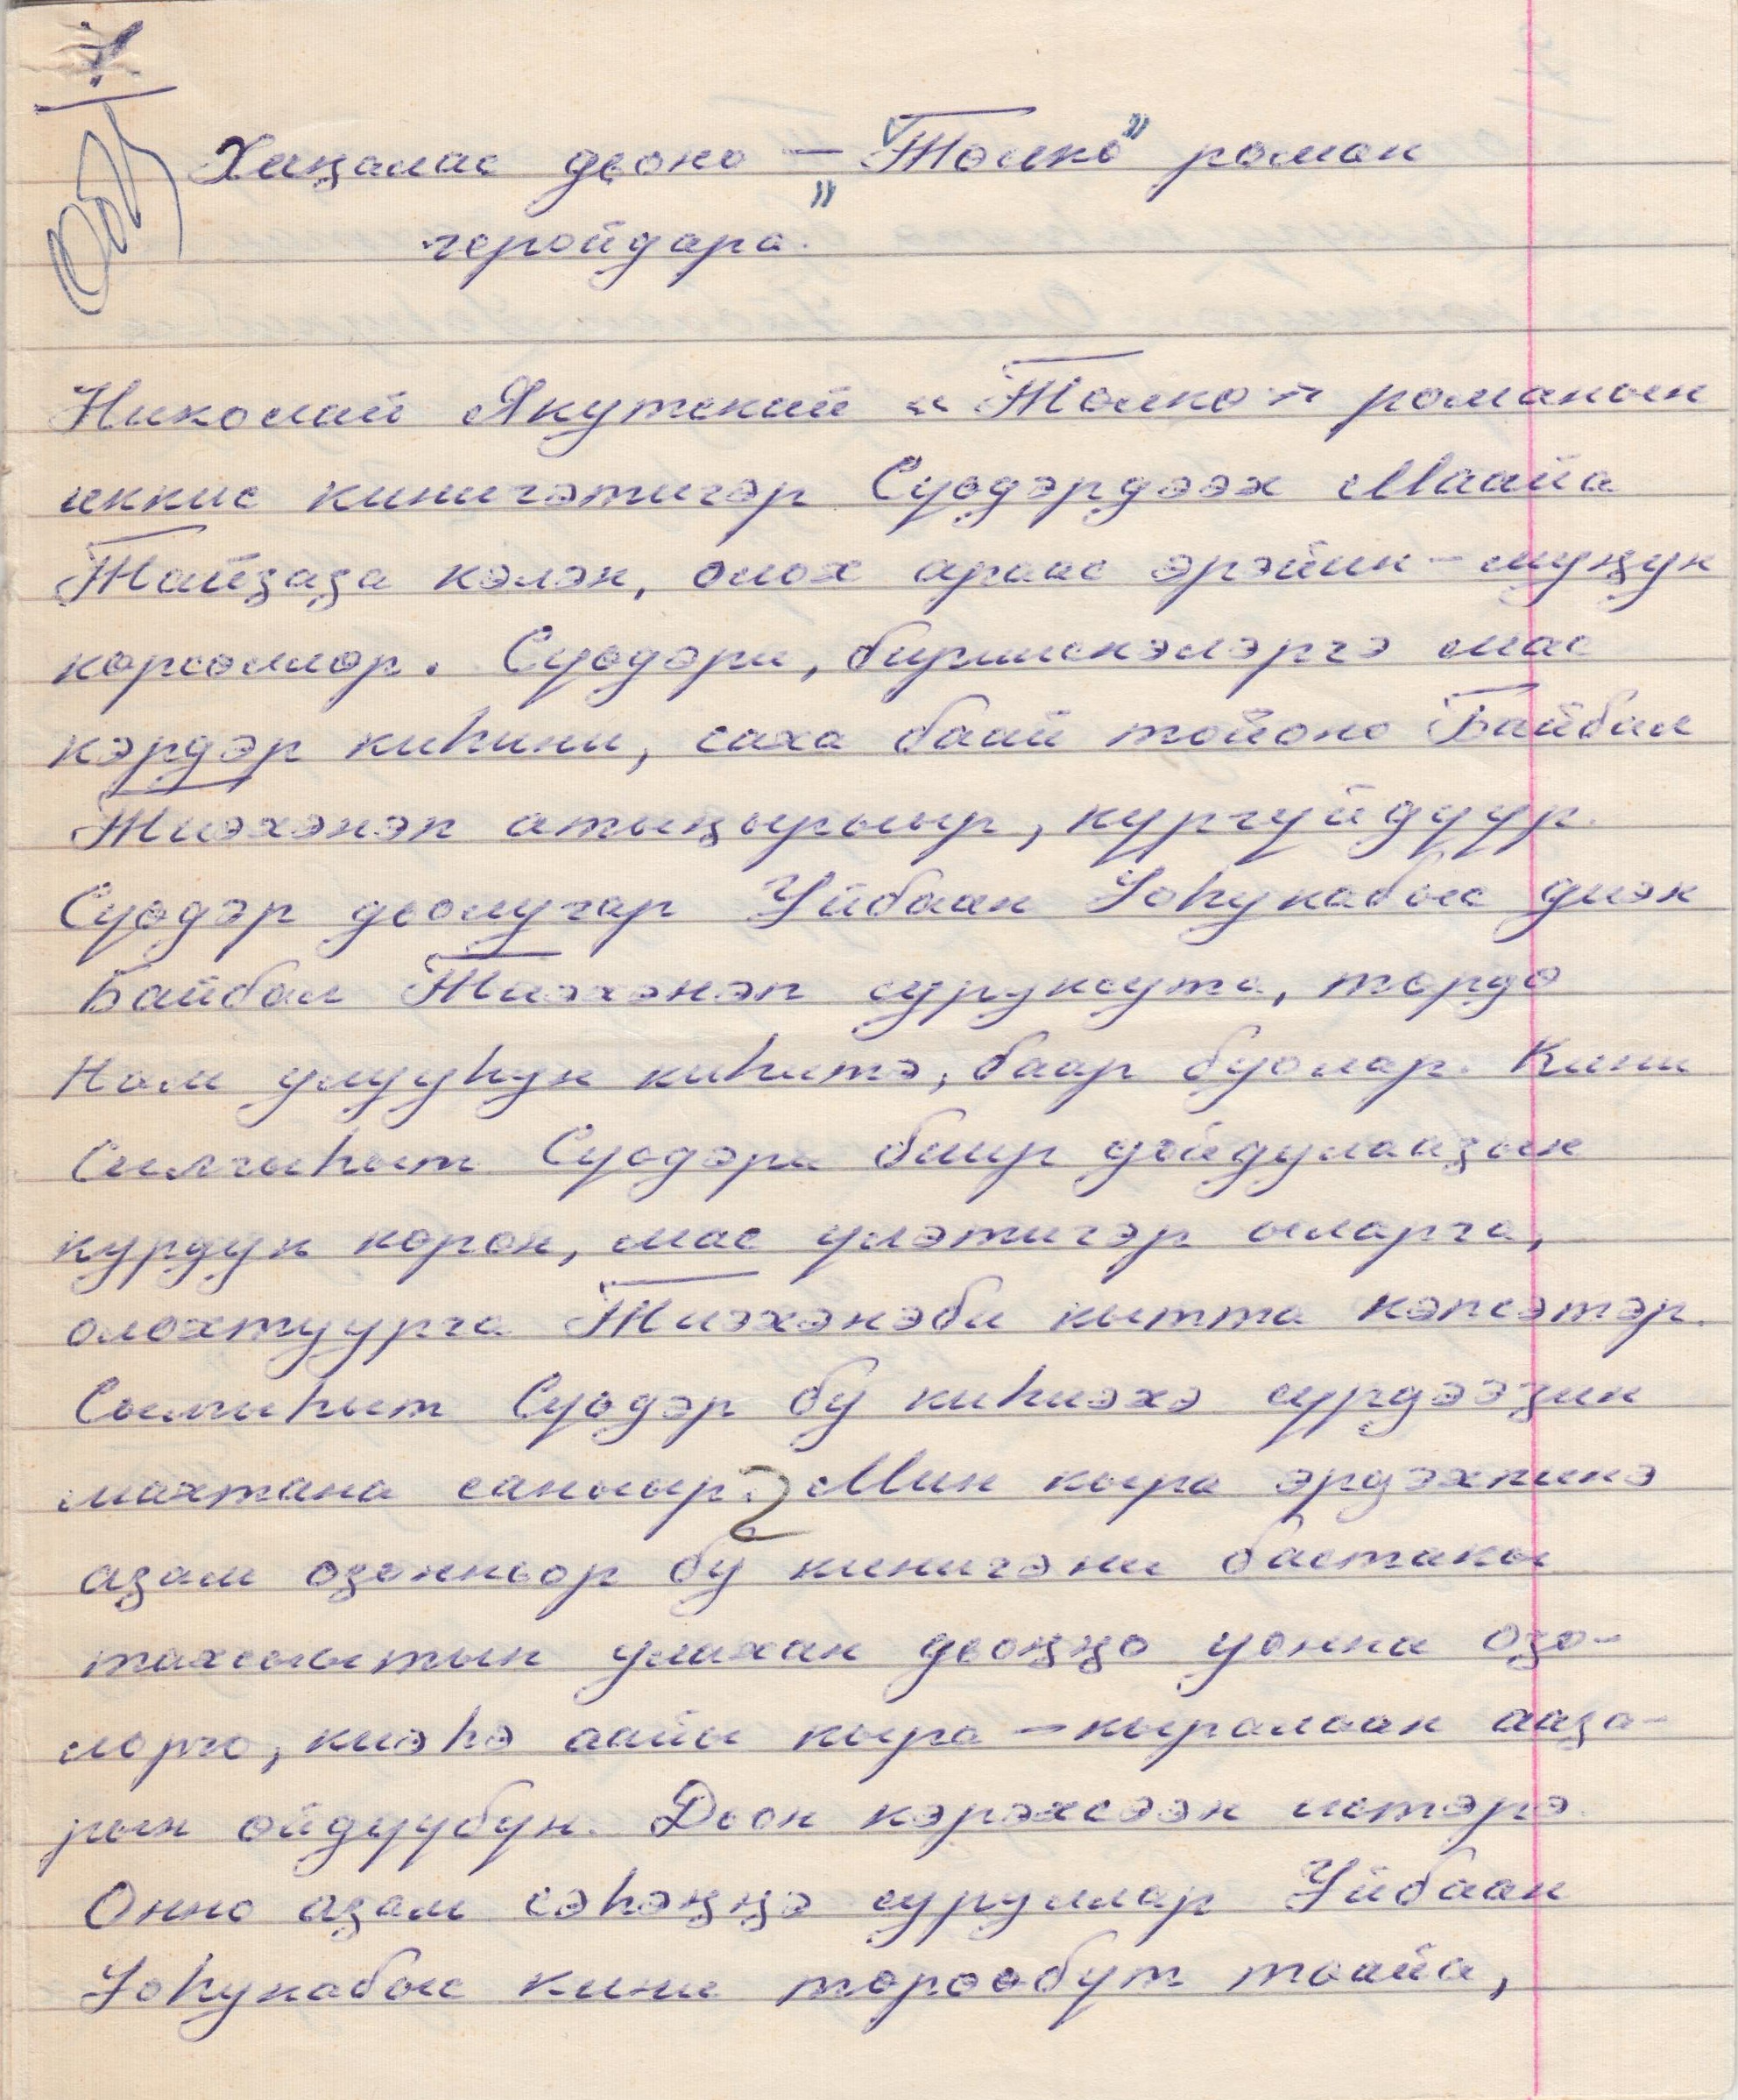 Хаҥалас дьоно – „Төлкө” роман
геройдара.
Николай Якутскай „Төлкө” романын
иккис кинигэтигэр Сүөдэрдээх Маайа
Тайҕаҕа кэлэн, олох араас эрэйин-муҥун
көрсөллөр. Сүөдэри, бириискэлэргэ мас
кэрдэр киһини, саха баай тойоно Байбал
Тиэхэнэп атыҥырыыр, күргүйдүүр.
Сүөдэр дьолугар Уйбаан Уоһукабыс диэн
Байбал Тиэхэнэп суруксута, төрдө
Нам улууһун киһитэ, баар буолар. Кини
Сылгыһыт Сүөдэри биир дойдулааҕын
курдук көрөн, мас үлэтигэр ыларга,
олохтуурга Тиэхэнэби кытта кэпсэтэр.
Сылгыһыт Сүөдэр бу киһиэхэ сүрдээҕин
махтана саныыр. Мин кыра эрдэхпинэ
аҕам оҕонньор бу кинигэни бастакы
тахсыытын улахан дьоҥҥо уонна оҕо-
лорго, киэһэ аайы кыра-кыралаан ааҕа-
рын өйдүүбүн. Дьон кэрэхсээн истэрэ.
Онно аҕам сэһэҥҥэ суруллар Уйбаан
Уоһукабыс кини төрөөбүт таайа,